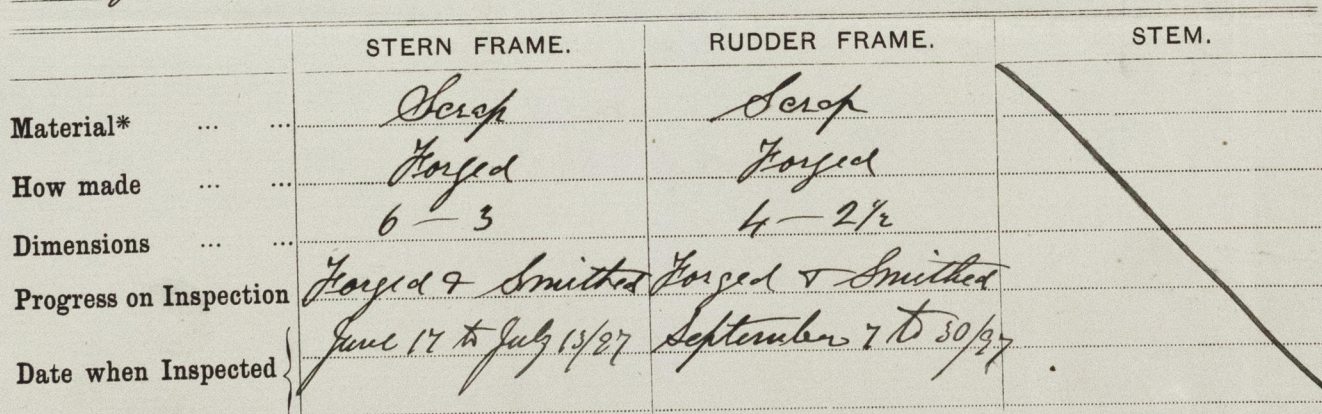 STERN FRAME. RUDDER FRAME. STEM.
Material* ... ... Scrap Scrap
How made ... ... Forged Forged
Dimensions ... ... 6 — 3 4 — 2½
Progress on Inspection Forged & Smithed Forged & Smithed
Date when Inspected { June 17 to July 13/97 September 7 to 30/97